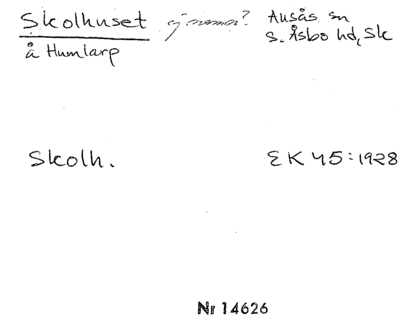 Skolhuset ej namn? Ausås sn
å Humlarp S. Åsbo hd, Sk
Skolh. EK 45:1928
Nr 14626